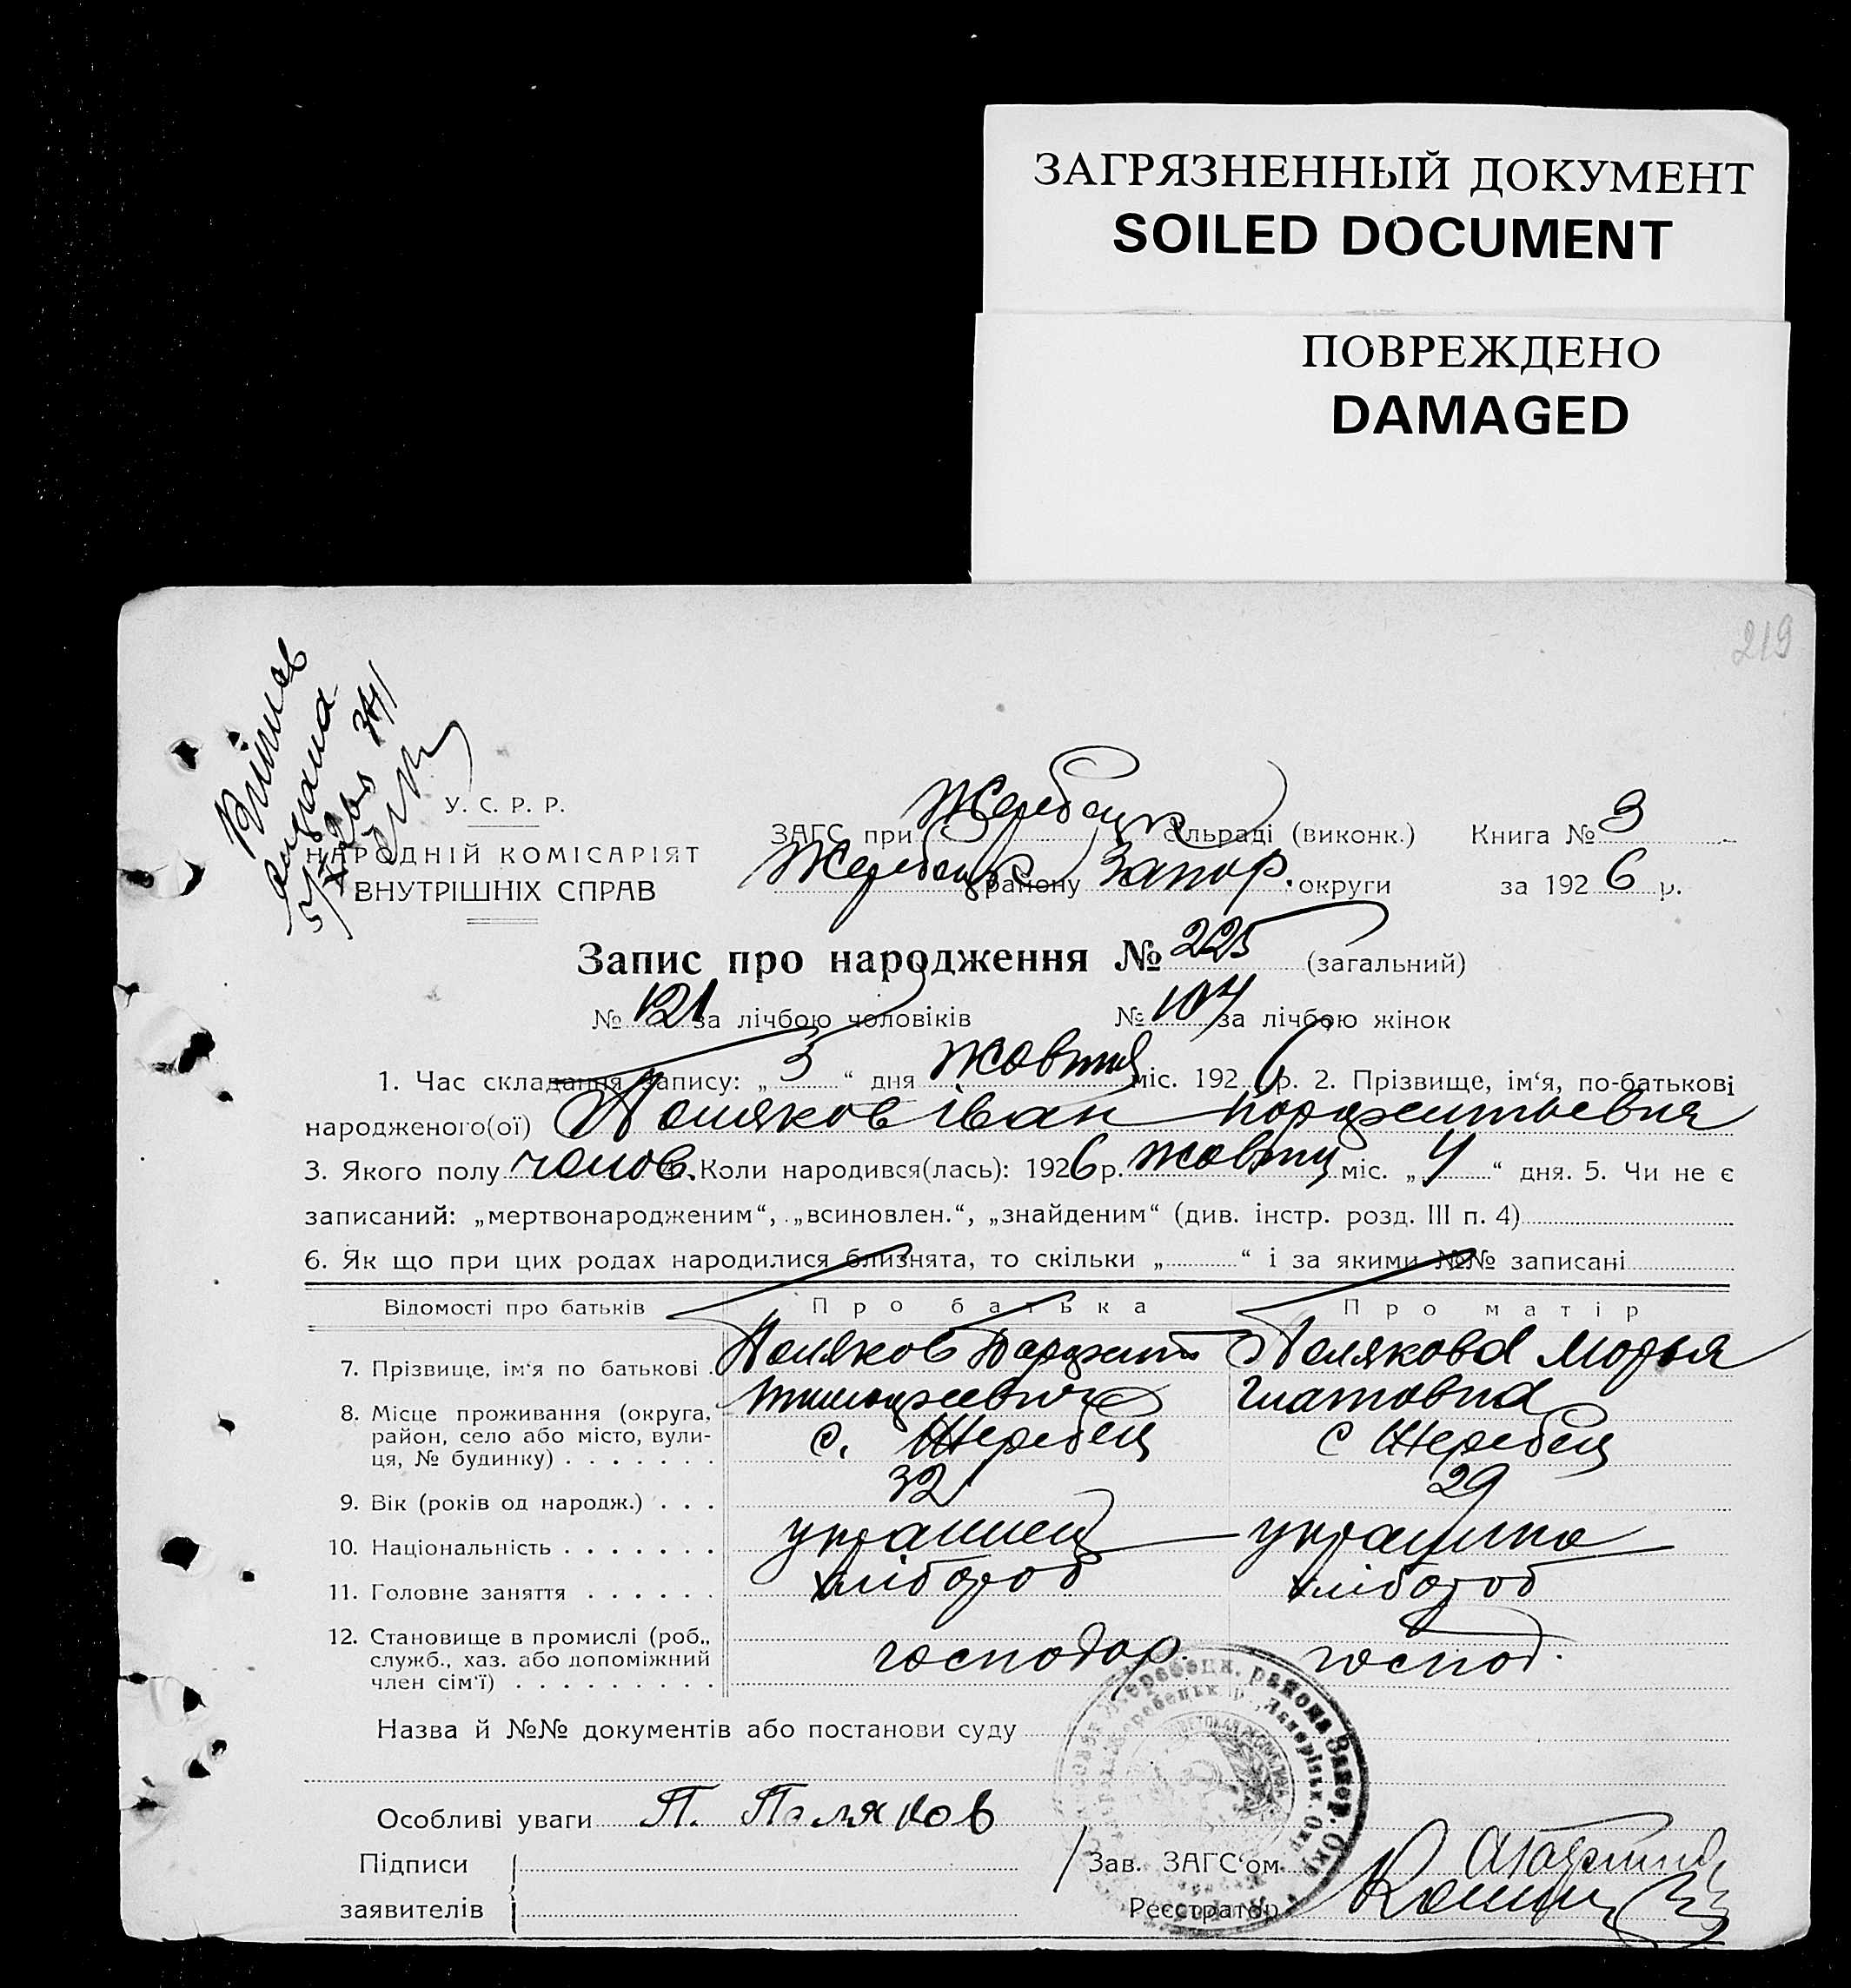 ЗАГРЯЗНЕННЫЙ ДОКУМЕНТ
SOILED DOCUMENT
ПОВРЕЖДЕНО
DAMAGED
219
У. С. Р. Р.
НАРОДНІЙ КОМІСАРІЯТ
ВНУТРІШНІХ СПРАВ
ЗАГС при Жеребецк сільраді (виконк.) Книга № 3
Жеребецк району Запор. округи за 1926 р.
Запис про народження № 225 (загальний)
№ 121 за лічбою чоловіків № 104 за лічбою жінок
1. Час складання запису: „ 5 “ дня жовтня міс. 1926 р. 2. Прізвище, ім‘я, по-батькові
народженого(ої) Поляков іван
3. Якого полу чолов. 4. Коли народився(лась): 1926 р. жовтня міс. „ 4 “ дня. 5. Чи не є
записаний: „мертвонародженим“, „всиновлен.“, „знайденим“ (див. інстр. розд. III п. 4)
6. Як що при цих родах народилися близнята, то скільки „ “ і за якими №№ записані
Відомості про батьків Про батька Про матір
7. Прізвище, ім‘я по батькові . Поляков Полякова Марья
8. Місце проживання (округа,
район, село або місто, вули-
ця, № будинку) . . . . . . . с. Жеребец с Жеребец
9. Вік (років од народж.) . . . 32 29
10. Національність . . . . . . . українец українка
11. Головне заняття . . . . . . хлібороб хлібороб
12. Становище в промислі (роб.,
служб., хаз. або допоміжний
член сім‘ї) . . . . . . . . . господар. господ.
Назва й №№ документів або постанови суду
Особливі уваги П. Поляков
Підписи
заявителів
Зав. ЗАГС‘ом
Реєстратор